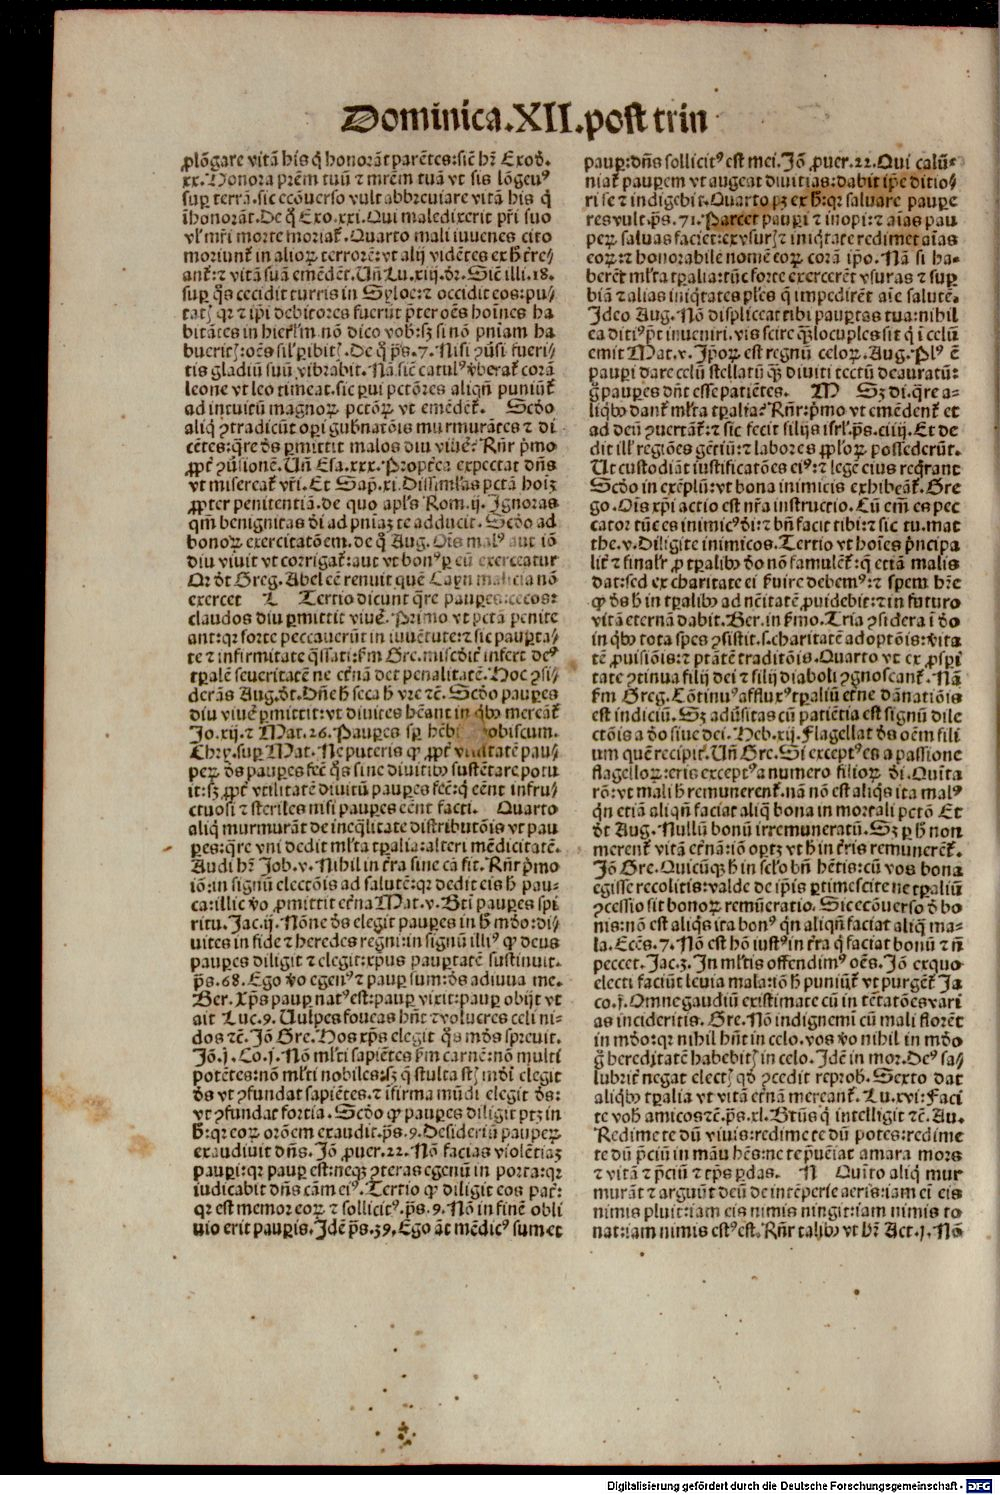 Dominica.XII.post trin
ꝓlõgare vitã his q̃ honorãt parẽtes:sic̃ hr̃ Exod̃.
xx.Honora prẽm tuũ ⁊ mr̃em tuã vt sis lõgeuꝰ
suꝑ terrã.sic ecõuerso vult abbreuiare vitã his q̃
ĩhonorãt.De q̃ Exo.xxi.Qui maledixerit pr̃i suo
vl̕ mr̃i morte moriat̃.Quarto mali iuuenes cito
moriunt̃ in alioꝝ terrorẽ:vt alij vidẽtes ex h̃ t̃re/
ant̃:⁊ vitã suã emẽdẽt.Uñ Lu.xiij.dr̃.Sic̃ illi.18.
suꝑ q̃s cecidit turris in Syloe:⁊ occidit eos:pu/
tatꝭ qꝛ ⁊ ip̃i debitores fuerũt p̃ter oẽs hoĩnes ha
bitãtes in hierl̃m.nõ dico vob̃:sꝫ si nõ pñiam ha
bueritꝭ:oẽs sil̕ ꝑibitꝭ.De q̃ p̃s.7.Nisi ꝯũsi fueri/
tis gladiũ suũ vibrabit.Nã sic̃ catulꝰ ṽberat̃ corã
leone vt leo timeat.sic ꝑui pctõres aliqñ puniũt̃
ad intuitũ magnoꝝ pctõꝝ vt emẽdẽt̃. Scd̃o
aliq̃ ꝯtradicũt oꝑi gub̃natõis murmurãtes ⁊ di
cẽtes:q̃re d̃s ꝑmittit malos diu viuẽ? Rñr p̃mo
ꝓpt̃ ꝯũsionẽ.Uñ Esa.xxx.Propt̃ea expectat dñs
vt misereat̃ vr̃i.Et Sap̃.xi.Dissimĩas pctã hoĩꝫ
ꝓpter penitentiã.de quo apl̃s Rom.ij.Ignoras
qm̃ benignitas d̃i ad pñiaꝫ te adducit.Scd̃o ad
bonoꝝ exercitatõem.de q̃ Aug.Oĩs malꝰ aut iõ
diu viuit vt corrigat̃:aut vt bonꝰ ꝑ eũ exerceatur
Or d̃t Greg.Abel eẽ renuit quẽ Cayn malicia nõ
exercet L Tertio dicunt q̃re pauꝑes:cecos:
claudos diu ꝑmittit viuẽ.Primo vt pctã penite
ant:qꝛ forte peccauerũt in iuuẽtute:⁊ sic pauꝑta/
te ⁊ infirmitate q̃ssati:km̃ Gre.misc̃dir̃ infert deꝰ
tꝑalẽ seueritatẽ ne et̃nã det penalitatẽ.Hoc ꝯsi/
derãs Aug.d̃t.Dñe h̃ seca h̃ vre ⁊c̃.Scd̃o pauꝑes
diu viuẽ ꝑmittit:vt diuites hẽant in q̃bꝰ mereãt̃
Jo.xij.⁊ Mat.26.Pauꝑes sꝑ hẽb obiscum.
Chry.suꝑ Mat.Ne puteris ꝙ ꝓpt̃ vilitatẽ pau/
peꝝ d̃s pauꝑes fec̃ q̃s sine diuitibꝰ sustẽtare potu
it:sꝫ ꝓpt̃ vtilitatẽ diuitũ pauꝑes fec̃:q̃ eẽnt infru/
ctuosi ⁊ steriles nisi pauꝑes eẽnt facti. Quarto
aliq̃ murmurãt de ineq̃litate distributõis vt pau
ꝑes:q̃re vni dedit ml̃ta tꝑalia:alteri mẽdicitatẽ.
Audi hr̃ Job.v.Nihil in t̃ra sine cã fit.Rñr p̃mo
iõ:in signũ electõis ad salutẽ:qꝛ dedit eis h̃ pau/
ca:illic ṽo ꝓmittit et̃na Mat.v.Bt̃i pauꝑes spi
ritu.Jac.ij.Nõne d̃s elegit pauꝑes in h̃ mũdo:di/
uites in fide ⁊ heredes regni:in signũ illiꝰ ꝙ deus
pauꝑes diligit ⁊ elegit:xp̃us pauꝑtatẽ sustinuit.
p̃s.68.Ego ṽo egenꝰ ⁊ pauꝑ sum:d̃s adiuua me.
Ber.Xp̃s pauꝑ natꝰ est:pauꝑ vixit:pauꝑ obijt vt
ait Luc.9.Uulpes foueas hñt ⁊ volucres celi ni/
dos ⁊c̃.Jõ Gre.Hos xp̃s elegit q̃s mũds spreuit.
Jõ.j.Co.j.Nõ ml̃ti sapiẽtes km̃ carnẽ:nõ multi
potẽtes:nõ ml̃ti nobiles:sꝫ q̃ stulta stꝭ mũdi elegit
d̃s vt ꝯfundat sapiẽtes.⁊ ifirma mũdi elegit d̃s:
vt ꝯfundat fortia.Scd̃o ꝙ pauꝑes diligit ptꝫ in
h̃:qꝛ eoꝝ orõem exaudit.p̃s.9.Desideriũ pauꝑeꝝ
exaudiuit dñs.Jõ ꝓuer.22.Nõ facias violẽtiaꝫ
pauꝑi:qꝛ pauꝑ est:neqꝫ ꝯteras egenũ in porta:qꝛ
iudicabit dñs cãm eiꝰ.Tertio ꝙ diligit eos pat̃:
qꝛ est memor eoꝝ ⁊ sollicitꝰ.p̃s.9.Nõ in finẽ obli
uio erit pauꝑis.Idẽ p̃s.39.Ego aũt mẽdicꝰ sum et
pauꝑ:dñs sollicitꝰ est mei.Jõ ꝓuer.22.Qui calũ/
niat̃ pauꝑem vt augeat diuitias:dabit ip̃e ditio/
ri se ⁊ indigebit.Quarto pꝫ ex h̃:qꝛ saluare pauꝑe
res vult.p̃s.71.Parcet pauꝑi ⁊ inopi:⁊ aĩas pau
peꝝ saluas faciet:ex vsurꝭ ⁊ iniq̃tate redimet aĩas
eoꝝ:⁊ honorabile nomẽ eoꝝ corã ip̃o.Nã si ha/
berẽt ml̃ta tꝑalia:tũc forte exercerẽt vsuras ⁊ suꝑ
biã ⁊ alias iniq̃tates ples q̃ impedirẽt aĩe salutẽ.
Ideo Aug.Nõ displiceat tibi pauꝑtas tua:nihil
ea ditiꝰ p̃t inueniri.vis scire q̃ꝫ locuples sit q̃ ĩ celũ
emit Mat.v.Ip̃oꝝ est regnũ celoꝝ.Aug.Plꝰ ẽ
pauꝑi dare celũ stellatũ q̃ꝫ diuiti tectũ deauratũ:
g̃ pauꝑes dñt esse patiẽtes. M Sꝫ di.q̃re a/
liqbꝰ dant̃ ml̃ta tꝑalia? Rñr:p̃mo vt emẽdent̃ et
ad deũ ꝯuertãt̃:⁊ sic fecit filijs isrl̕.p̃s.ciiij.Et de
dit ill̕ regiões gẽtiũ:⁊ labores pploꝝ possederũt.
Ut custodiãt iustificatões eiꝰ:⁊ legẽ eius reqrant
Scd̃o in exẽplũ:vt bona inimicis exhibeãt̃.Gre
go.Oĩs xp̃i actio est nr̃a instructio.Cũ em̃ es pec
cator tũc es inimicꝰ d̃i:⁊ bñ facit tibi:⁊ sic tu.mat
the.v.Diligite inimicos.Tertio vt hoĩes p̃ncipa
lit̃ ⁊ finalr̃ ꝓ tꝑalibꝰ d̃o nõ famulẽt̃:q̃ etiã malis
dat:sed ex charitate ei s̃uire debemꝰ:⁊ spem hr̃e
ꝙ d̃s h̃ in tꝑalibꝰ ad nẽitatẽ ꝓuidebit:⁊ in futuro
vitã eternã dabit.Ber.in s̃mo.Tria ꝯsidera ĩ d̃o
in qbꝰ tota spes ꝯsistit.s.charitatẽ adoptõis:v̾ita
tẽ ꝓuisiõis:⁊ ptãtẽ traditõis.Quarto vt ex ꝓspi
tate ꝯtinua filij dei ⁊ filij diaboli ꝯgnoscant̃.Nã
km̃ Greg.Cõtinuꝰ affluxꝰ tꝑaliũ et̃ne dãnatiõis
est indiciũ.Sꝫ adũsitas cũ patiẽtia est signũ dile
ctõis a d̃o siue dei.Heb.xij.Flagellat d̃s oẽm fili
um quẽ recipit̃.Uñ Gre.Si exceptꝰ es a passione
flagelloꝝ:eris exceptꝰ a numero filioꝝ d̃i.Quĩta
rõ:vt mali h̃ remunerent̃.nã nõ est aliq̃s ita malꝰ
q̃n etiã aliqñ faciat aliq̃ bona in mortali pctõ Et
d̃t Aug.Nullũ bonũ irremuneratũ.Sꝫ ꝑ h̃ non
merent̃ vitã et̃nã:iõ oꝑtꝫ vt h̃ in t̃ris remunerẽt̃.
Jõ Gre.Quicũqꝫ h̃ in sel̕o bñ hẽtis:cũ vos bona
egisse recolitis:valde de ip̃is ꝑtimescite ne tꝑaliũ
ꝯcessio sit bonoꝝ remũeratio.Sic ecõuerso d̃ bo
nis:nõ est aliq̃s ita bonꝰ q̃n aliqñ faciat aliq̃ ma/
la.Eccs.7.Nõ est hõ iustꝰ in t̃ra q̃ faciat bonũ ⁊ ñ
peccet.Jac.3.In ml̃tis offendimꝰ oẽs.Jõ ex quo
electi faciũt leuia mala:iõ h̃ puniũt̃ vt purgẽt̃ Ja
co.j.Omne gaudiũ existimate cũ in tẽtatões vari
as incideritis.Gre.Nõ indignemi cũ mali florẽt
in mũdo:qꝛ nihil hñt in celo.vos ṽo nihil in mũdo
g̃ hereditatẽ habebitꝭ in celo.Idẽ in mor.Deꝰ sa/
lubrit̃ negat electꝭ qd̃ ꝯcedit reprob̃.Sexto dat
aliqbꝰ tꝑalia vt vitã et̃nã mereant̃.Lu.xvi:Faci
te vob̃ amicos ⁊c̃.p̃s.xl.Btũs q̃ intelligit ⁊c̃.Au.
Redime te dũ viuis:redime te dũ potes:redime
te dũ p̃ciũ in manu hẽs:ne te p̃ueniat amara mors
⁊ vitã ⁊ p̃ciũ ⁊ tp̃s ꝑdas. N Quĩto aliq̃ mur
murãt ⁊ arguũt deũ de intẽperie aeris:iam ei̾ eis
nimis pluit:iam eis nimis ningit:iam nimis to
nat:iam nimis estꝰ est.Rñr talibꝰ vt hr̃ Act.j.Nõ
Digitalisierung gefördert durch die Deutsche Forschungsgemeinschaft - DFG